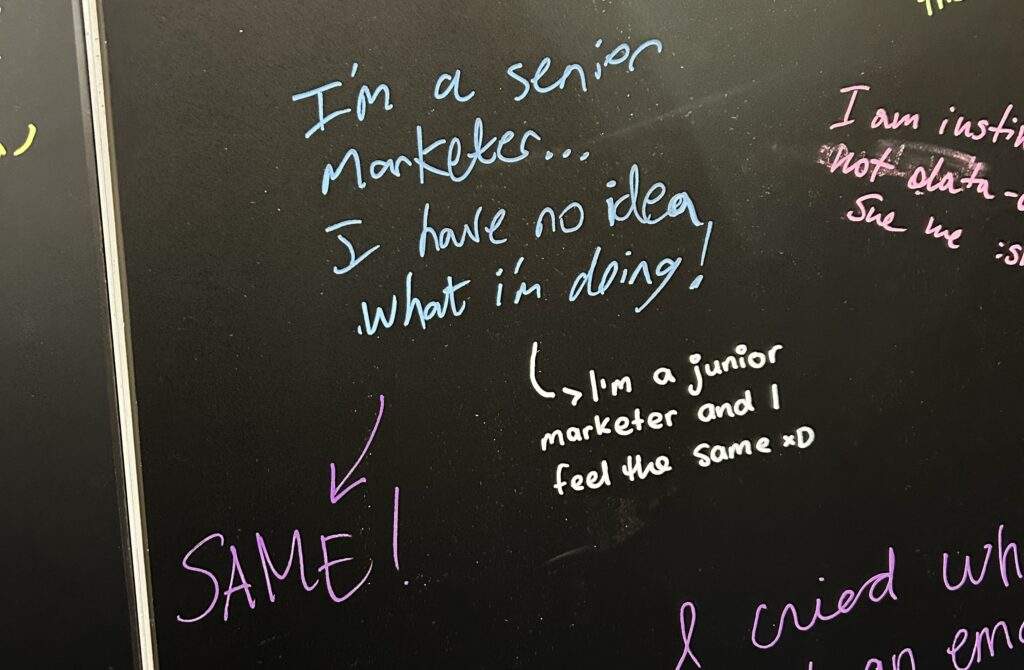 I'm a senior
marketer...
I have no idea
what i'm doing!
I'm a junior
marketer and I
feel the same xD
SAME!
I am
not data-
Sue me
I cried
an